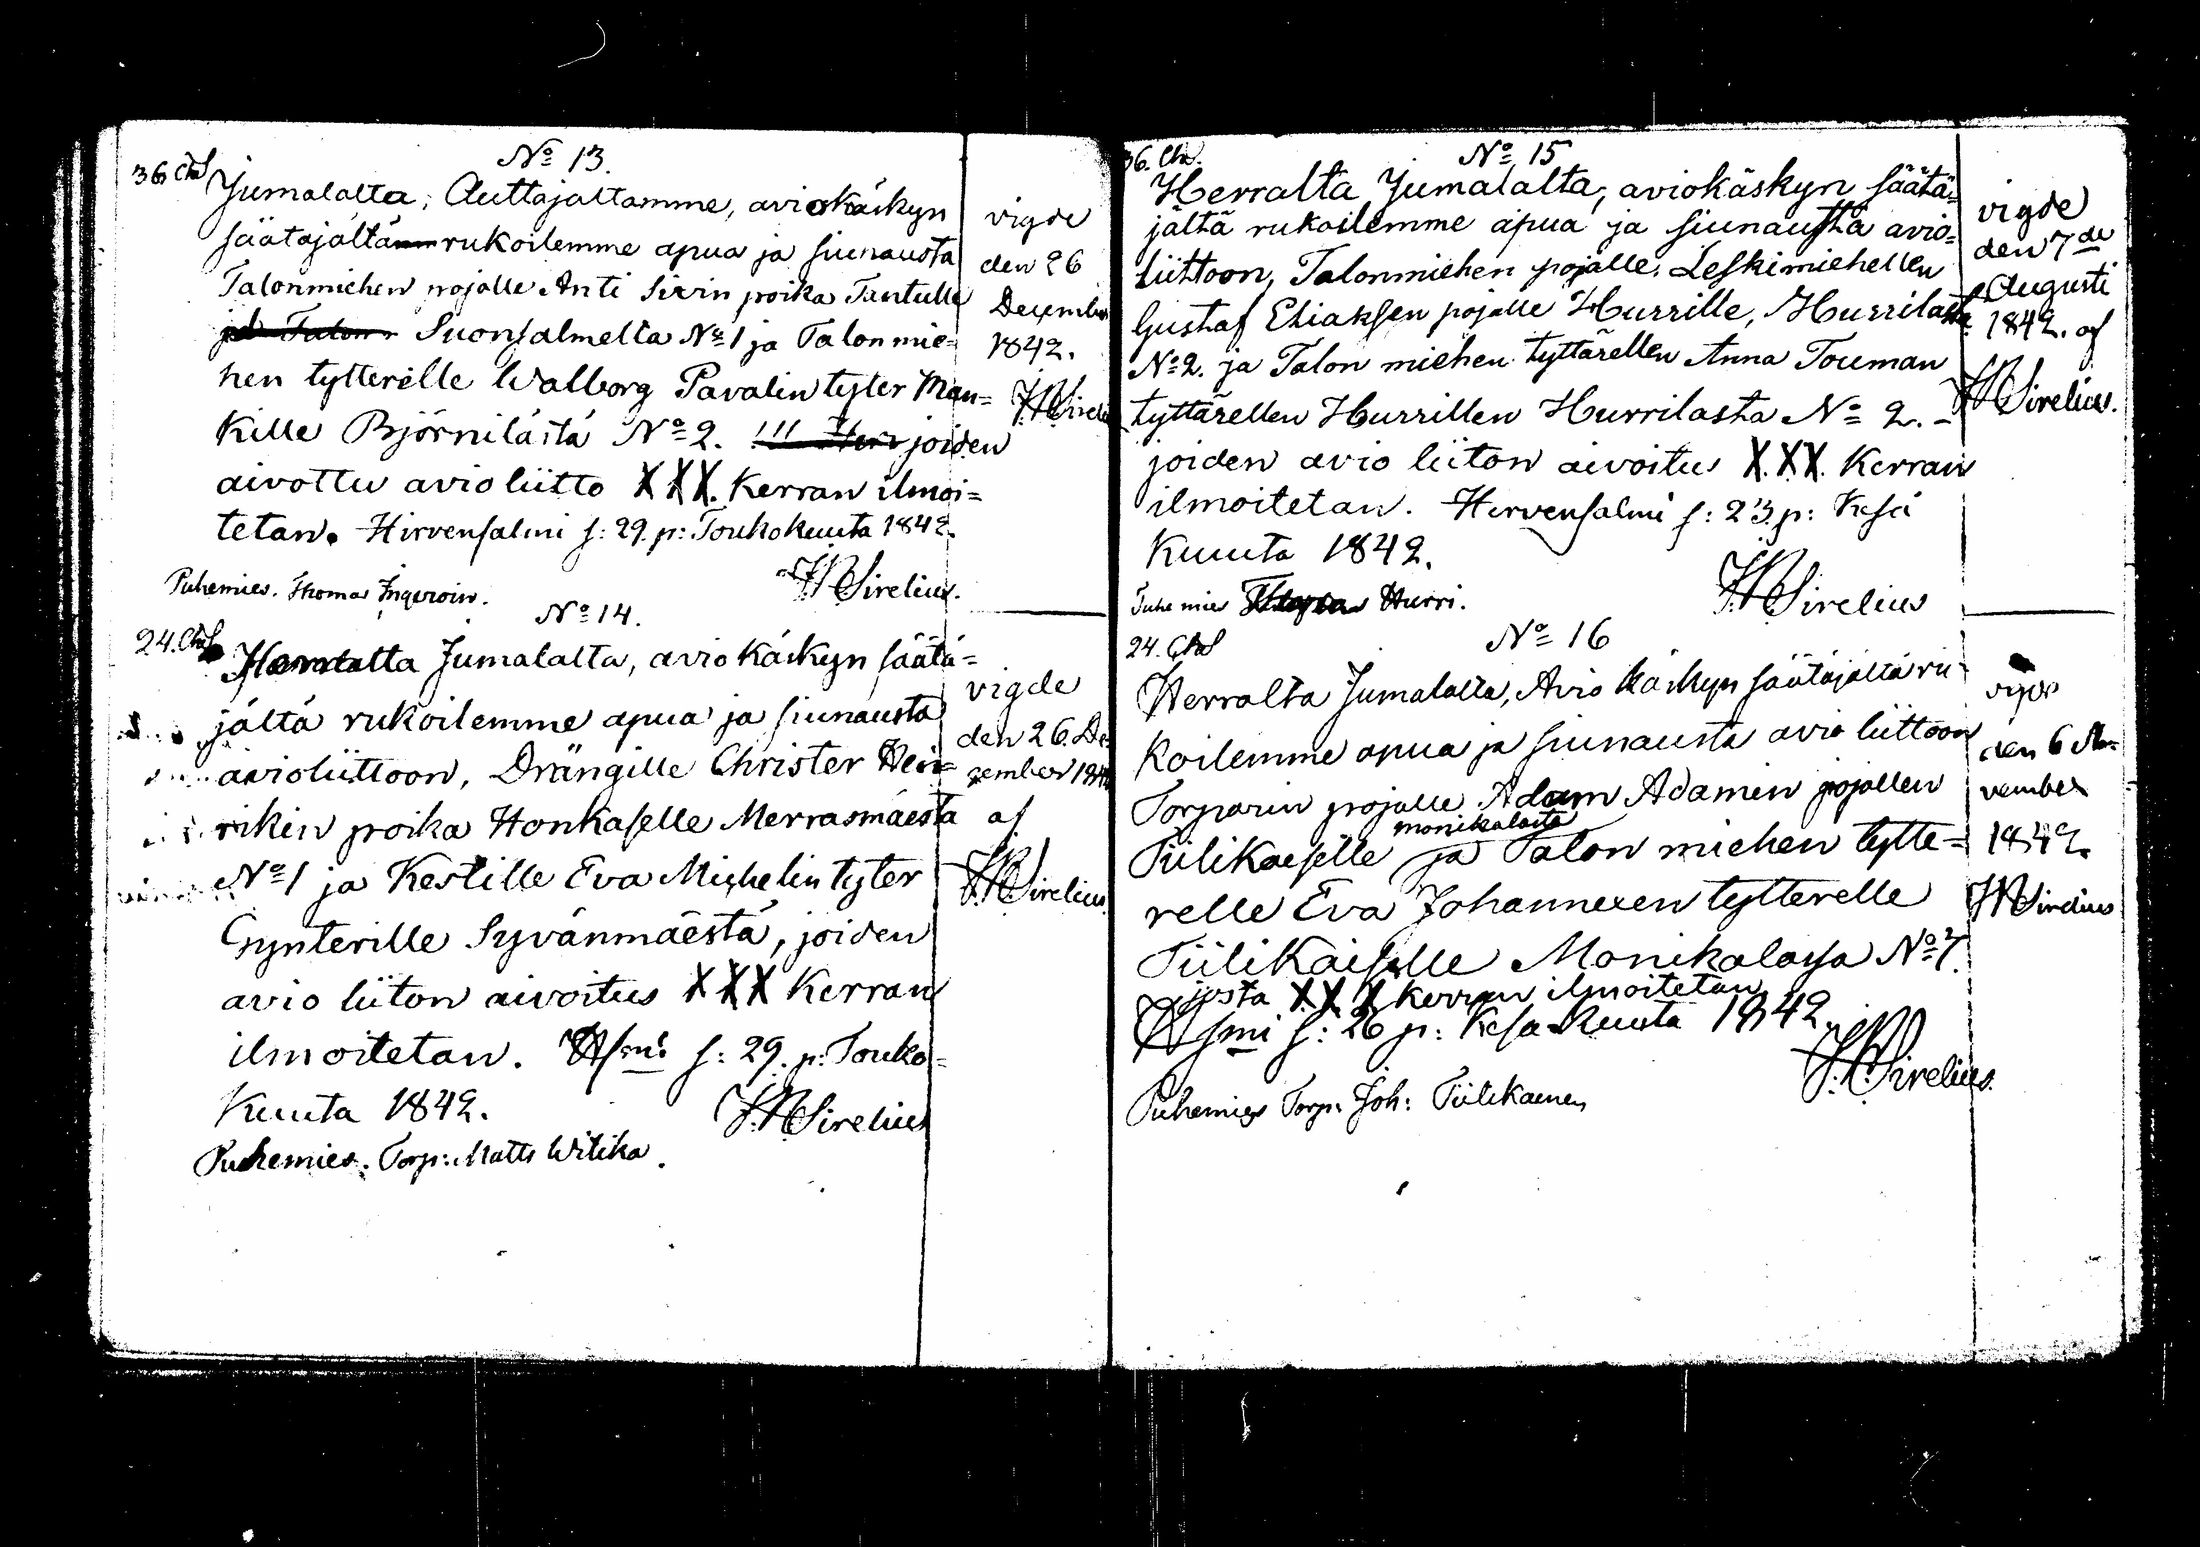 36. Ch S
No 13.
Jumalalta, Auttajaltamme, avioKäskyn
säätäjältä rukoilemme apua ja siunausta
Talonmiehen pojalle Anti Sirin poika Tantulle
Suonsalmelta No 1 ja Talon mie=
hen tytterelle Walborg Pavalin tyter Man=
Kille Björnilästä No 2. joiden
aivottu avioliitto XXX. Kerran ilmoi=
tetan. Hirvensalmi s: 29. p: Toukokuuta 1842.
JWSirelius.
Puhemies. Thomas Ingeroin.
vigde
den 26
December
1842.
JWSirelius
No 14.
24. Ch S
Herralta Jumalalta, avio Käskyn säätä=
jältä rukoilemme apua ja siunausta
avioliittoon, Drängille Christer Hein=
rikin poika Honkaselle Merrasmäesta
No 1 ja Kestille Eva Michelin tyter
Gynterille Syvänmäestä, joiden
avio liiton aivoitus XXX Kerran
ilmoitetan. Hsmi s: 29. p: Touko=
Kuuta 1842.
JWSirelius
Puhemies. Torp: Matts Witika.
vigde
den 26. De=
zember 1842
af
JWSirelius
36. Ch S.
No 15
Herralta Jumalalta, aviokäskyn säätä=
jältä rukoilemme apua ja siunausta avio=
liittoon, Talonmiehen pojalle, Leskimiehellen
Gustaf Eliaksen pojalle Hurrille, Hurrilasta
No 2. ja Talon miehen tyttärellen Anna Touman
tyttärellen Hurrillen Hurrilasta No 2. -
joiden avio liiton aivoitus X.X.X. Kerran
ilmoitetan. Hirvensalmi s: 23. p: Kesä
Kuuta 1842.
JWSirelius
Puhemies Hurri.
vigde
den 7de
Augusti
1842. af
JWSirelius.
No 16
24. Ch S
Herralta Jumalalta, Avio Käskyn säätäjältä ru=
Koilemme apua ja siunausta avio liittoon
Torparin pojalle Adam Adamin pojallen
monikalasta
Tiilikaeselle ja Talon miehen tytte=
relle Eva Johannexen tytterelle
Tiilikaiselle Monikalassa No 7.
josta X.X.X Kerran ilmoitetan
Hsmi s: 26 p: Kesa Kuuta 1842.
JWSirelius.
Puhemies Torp: Joh: Tiilikaenen
vigde
den 6 No=
vember
1842.
JWSirelius